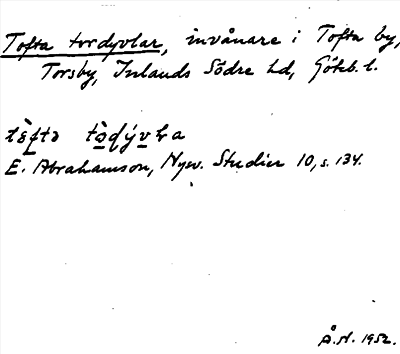 Tofta tordyvlar, invånare i Tofta by,
Torsby, Inlands Södre hd, Göteb. l.
E. Abrahamson, Nysv. Studier 10, s. 134.
Å.H. 1952.